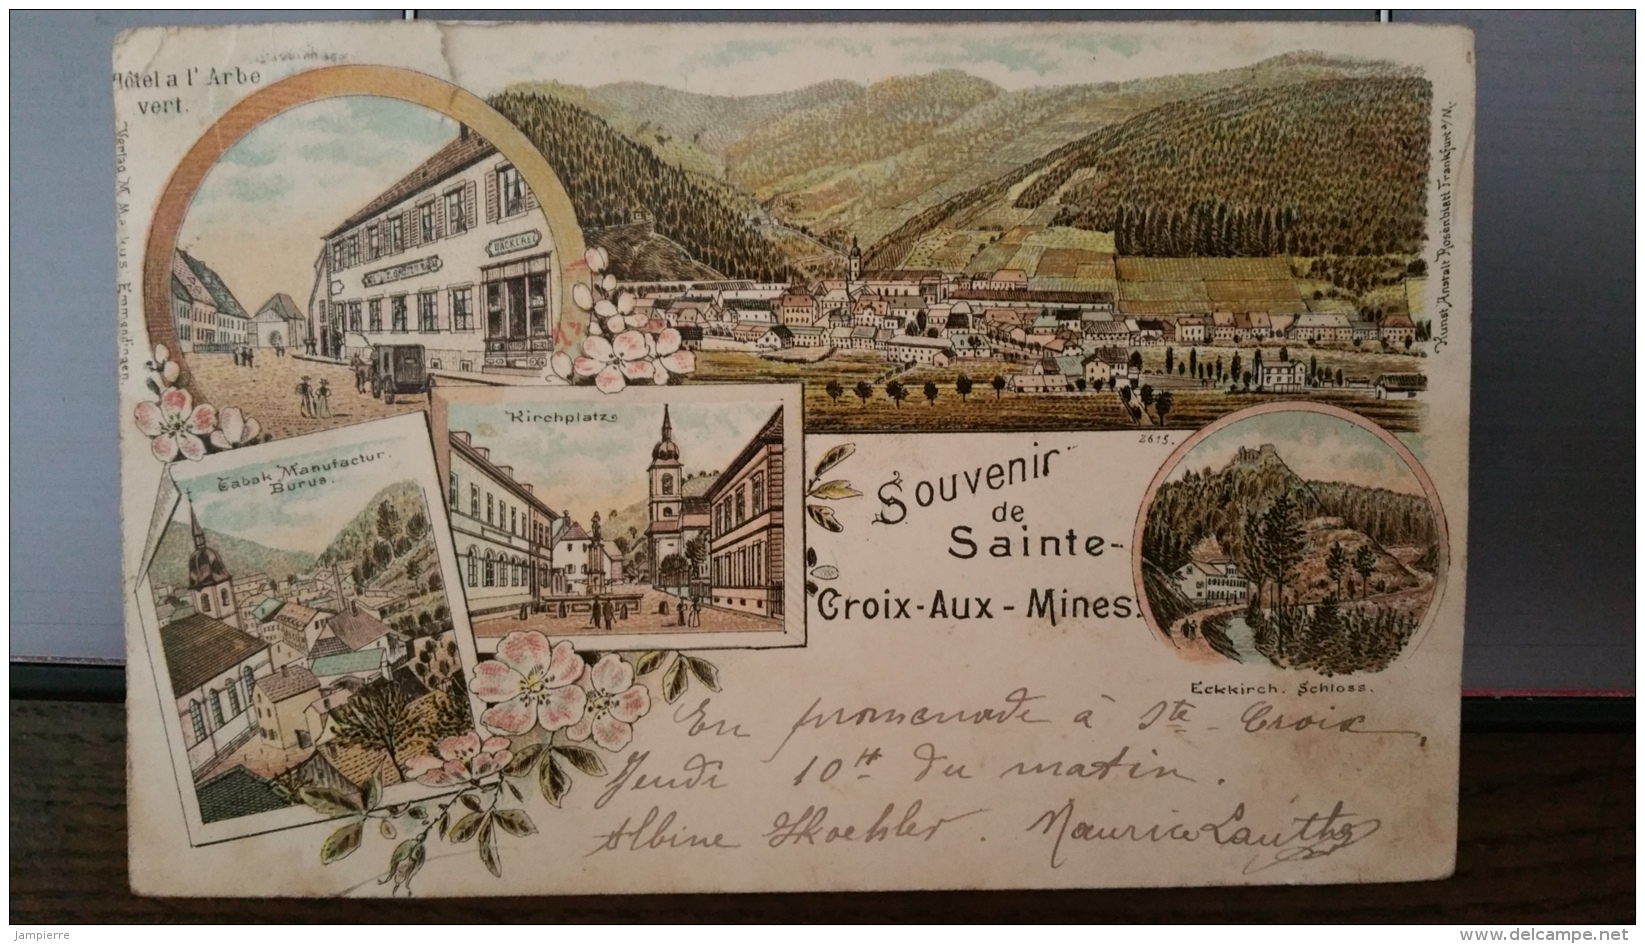 Hôtel a l' Arbe
vert.
Verlag M. Markus Emmendingen.
BÄCKEREI
Kunst Anstalt Rosenblatt Frankfurt a/M.
Kirchplatz
Tabak Manufactur.
Burus.
2615.
Souvenir
de
Sainte-
Croix-Aux-Mines.
Eckkirch. Schloss.
En promenade à Ste-Croix,
Jeudi 10 H du matin.
Albine Koehler. Maurice Lauth
Jampierre
www.delcampe.net